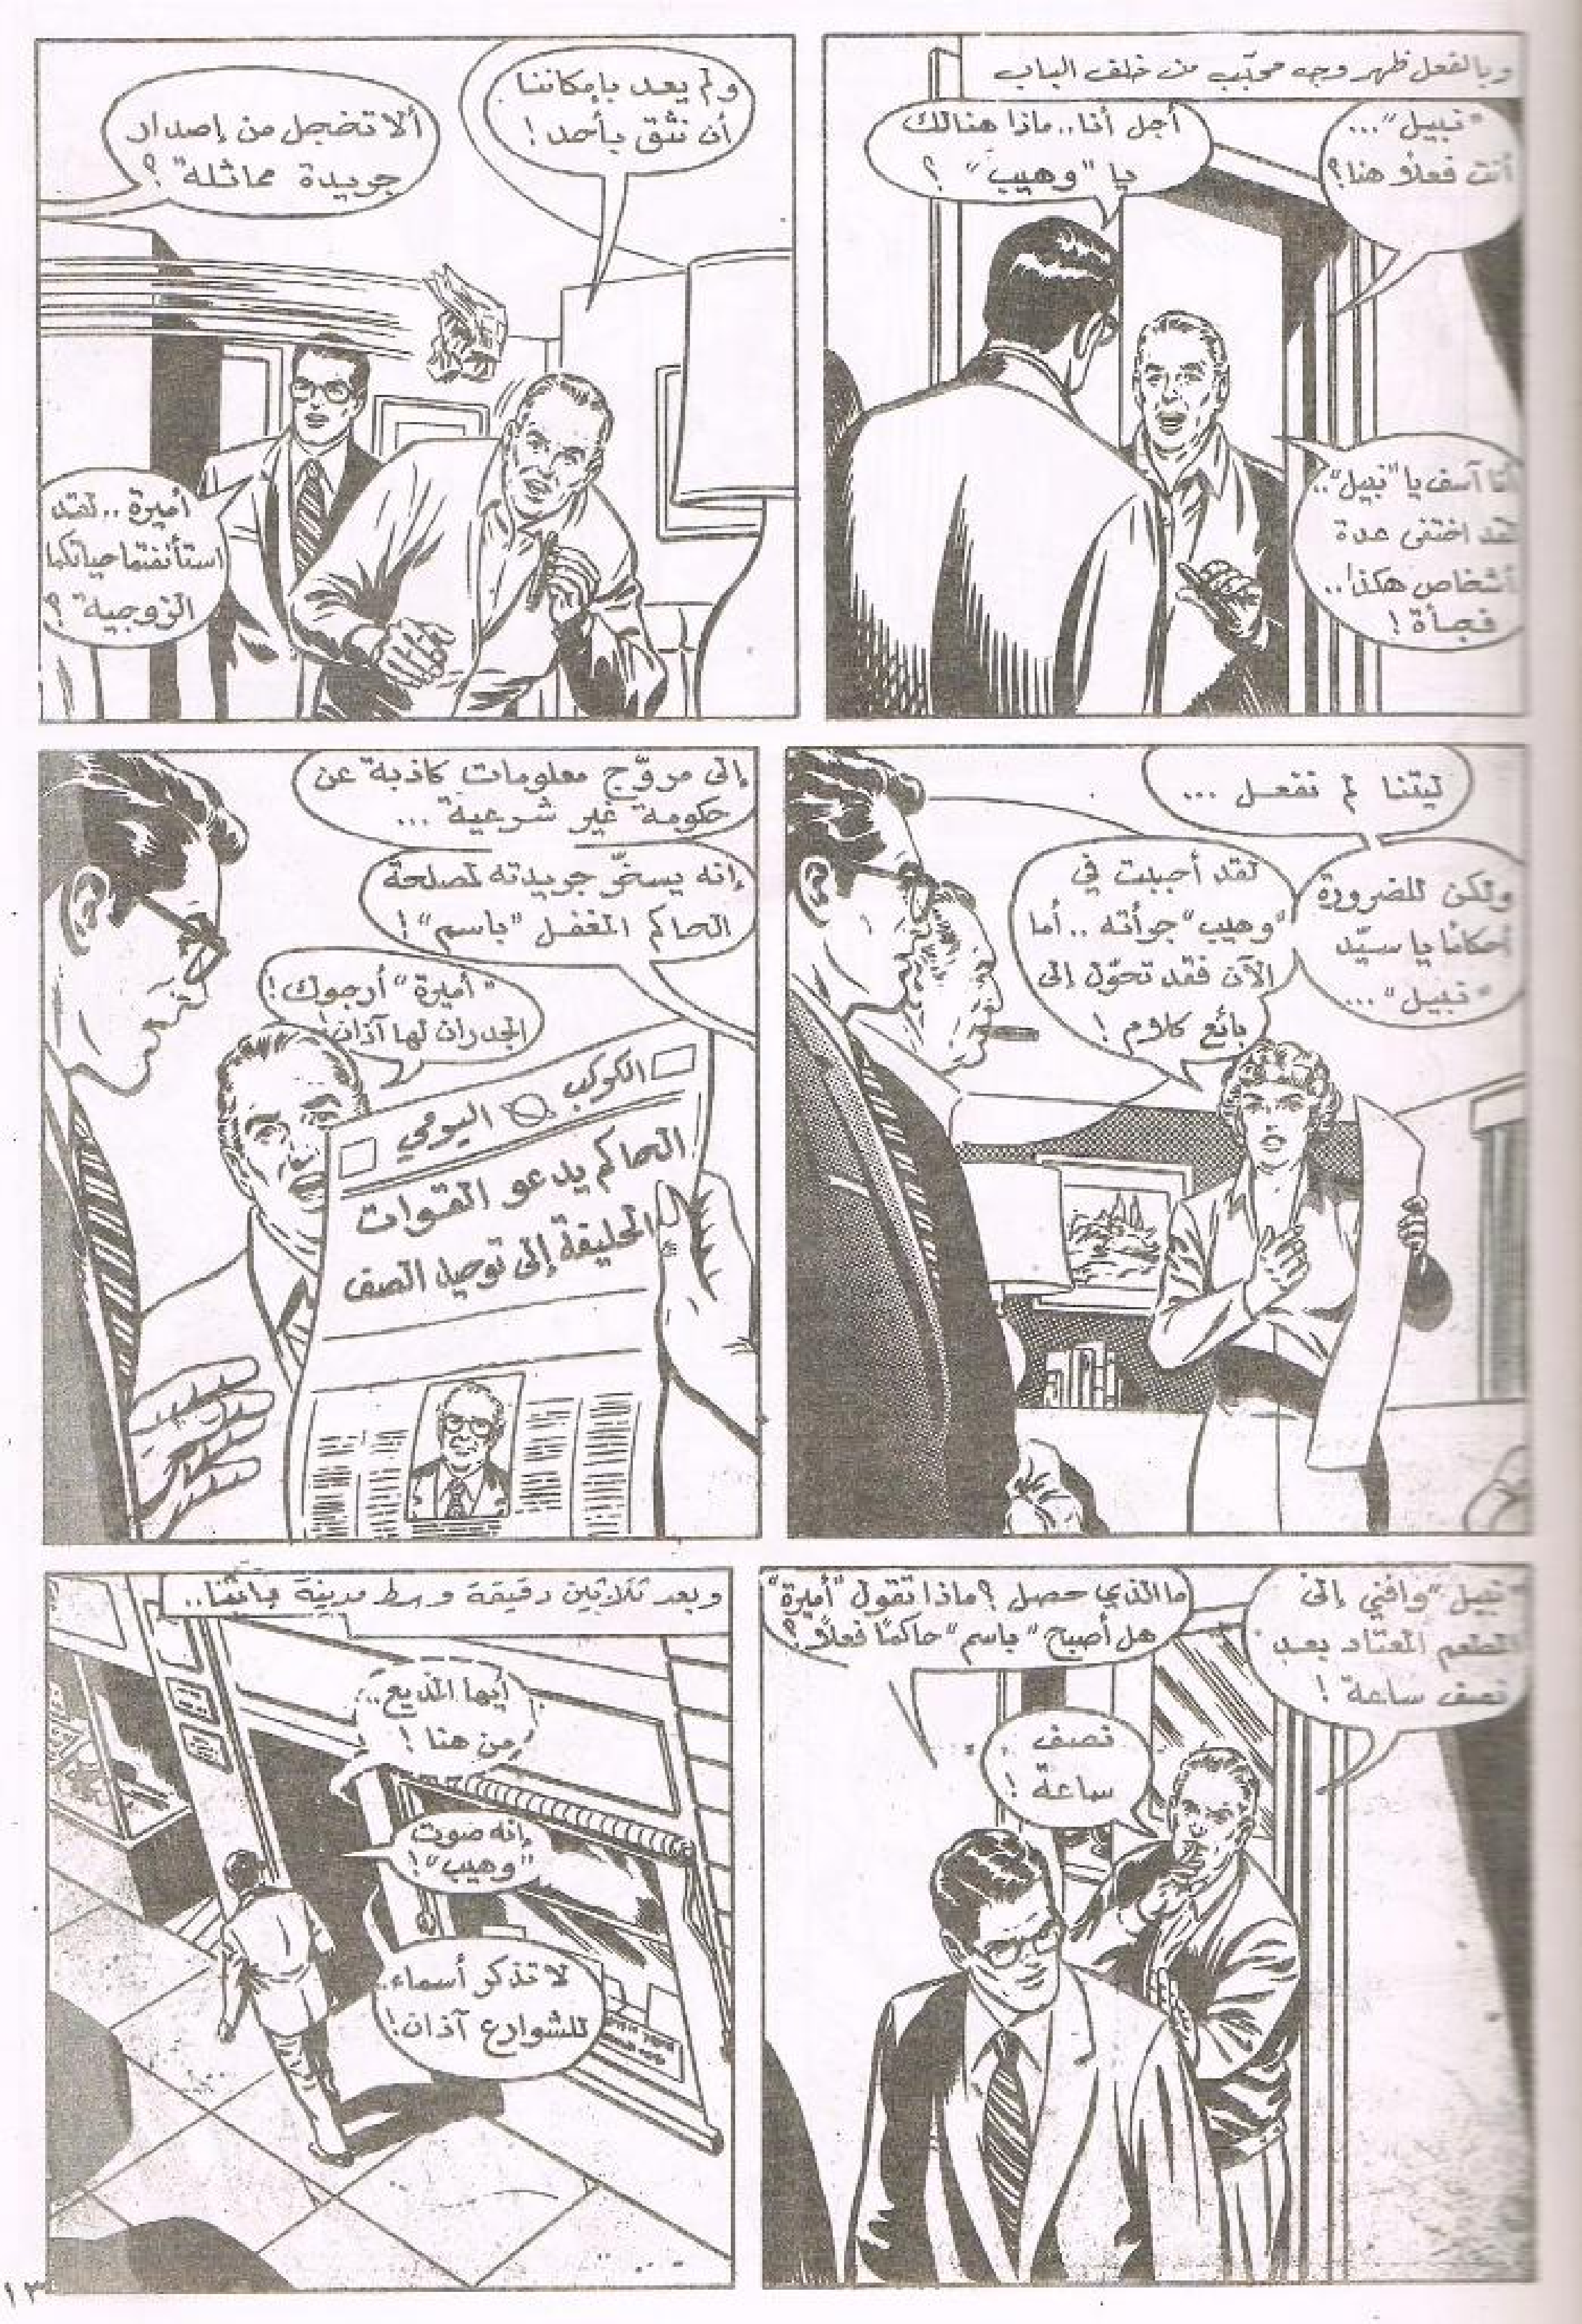 وبالفعل ظهر وجه محبّب من خلف الباب
"نبيل"...
أنت فعلاً هنا؟
أجل أنا.. ماذا هنالك
يا "وهيب" ؟
أنا آسف يا "نبيل"..
لقد اختفى عدة
أشخاص هكذا..
فجأة !
ولم يعد بإمكاننا
أن نثق بأحد !
ألا تخجل من إصدار
جريدة مماثلة ؟
أميرة .. لقد
استأنفتما حياتكما
الزوجية ؟
ليتنا لم نفعل ...
ولكن للضرورة
أحكامًا يا سيّد
"نبيل" ...
لقد أحببت في
"وهيب" جرأته .. أما
الآن فقد تحوّل إلى
بائع كلام !
إلى مروّج معلومات كاذبة عن
حكومة غير شرعية ...
إنه يسخّر جريدته لمصلحة
الحاكم المغفل "باسم" !
"أميرة" أرجوك !
الجدران لها آذان !
الكوكب اليومي
الحاكم يدعو القوات
الحليفة إلى توحيد الصف
"نبيل" وافني إلى
المطعم المعتاد بعد
نصف ساعة !
ما الذي حصل ؟ ماذا تقول "أميرة"
هل أصبح "باسم" حاكمًا فعلاً ؟
نصف
ساعة !
وبعد ثلاثين دقيقة وسط مدينة
أيها المذيع..
من هنا !
إنه صوت
"وهيب" !
لا تذكر أسماء..
للشوارع آذان !
١٣